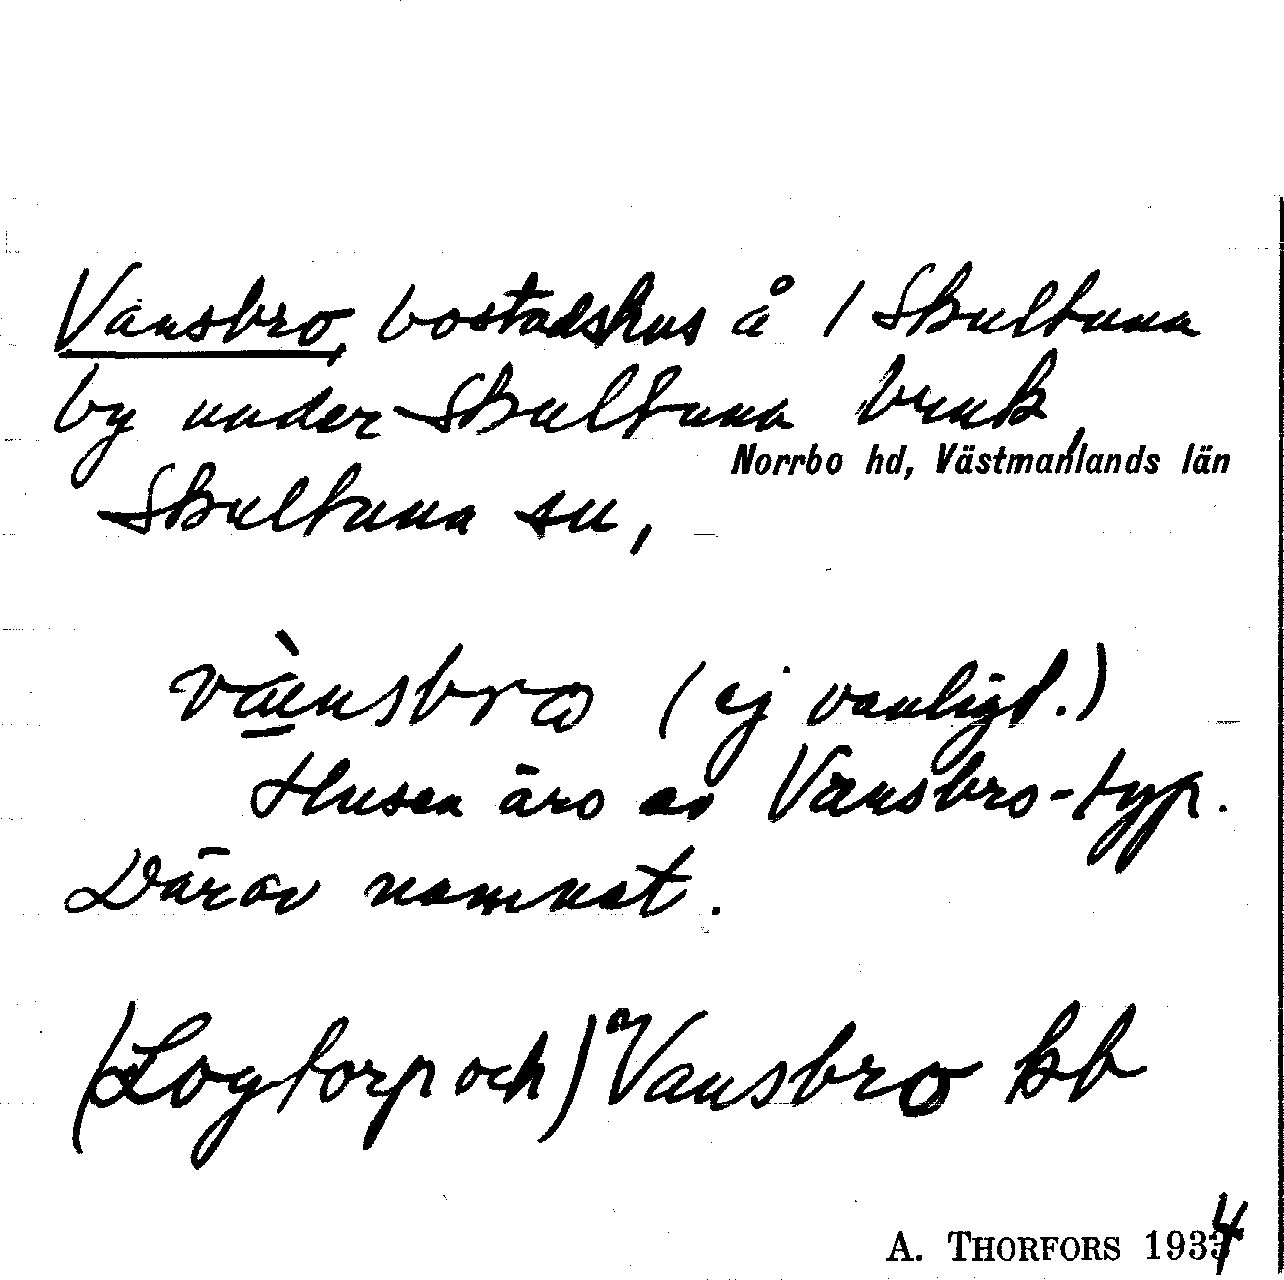 Vansbro, bostadshus å 1 Skultuna
by under Skultuna bruk,
Norrbo hd, Västmanlands län
Skultuna sn,
vànsbro (ej vanligt.)
Husen äro av Vansbro-typ.
Därav namnet.
(Logtorp och) Vansbro kb
A. THORFORS 1934